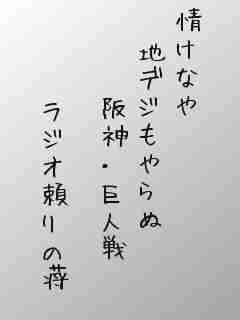 情けなや
地デジもやらぬ
阪神・巨人戦
ラジオ頼りの蒋